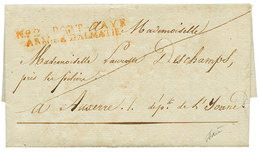 Nº 6 PORT PAYÉ
ARM. DALMATIE
A Mademoiselle
Mademoiselle Laurette Deschamps,
près les
à Auxerre. dépt. de L'Yonne.